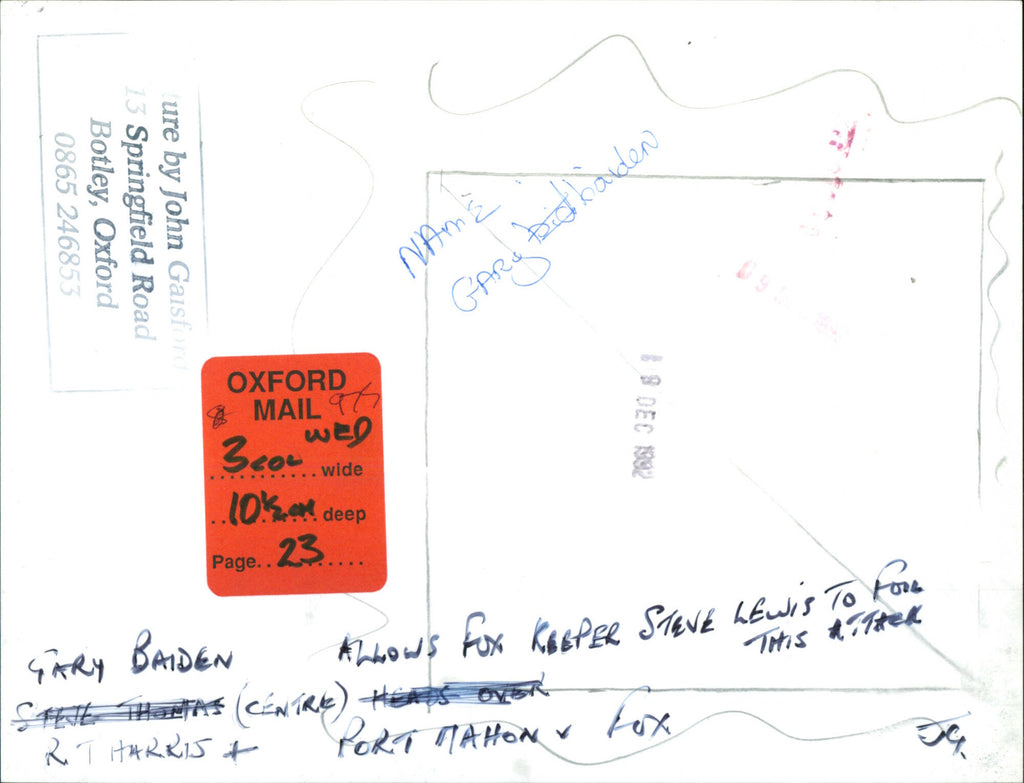 ure by John Gaisford
13 Springfield Road
Botley, Oxford
0865 246853
NAME
GARY Baiden
OXFORD
MAIL
WED
3 COL wide
10½ CM deep
Page 23
09
18 DEC 1992
GARY BAIDEN ALLOWS FOX KEEPER STEVE LEWIS TO FOIL
THIS ATTACK
STEVE THOMAS (CENTRE) HEADS OVER
R. T HARRIS + PORT MAHON v FOX
JG.